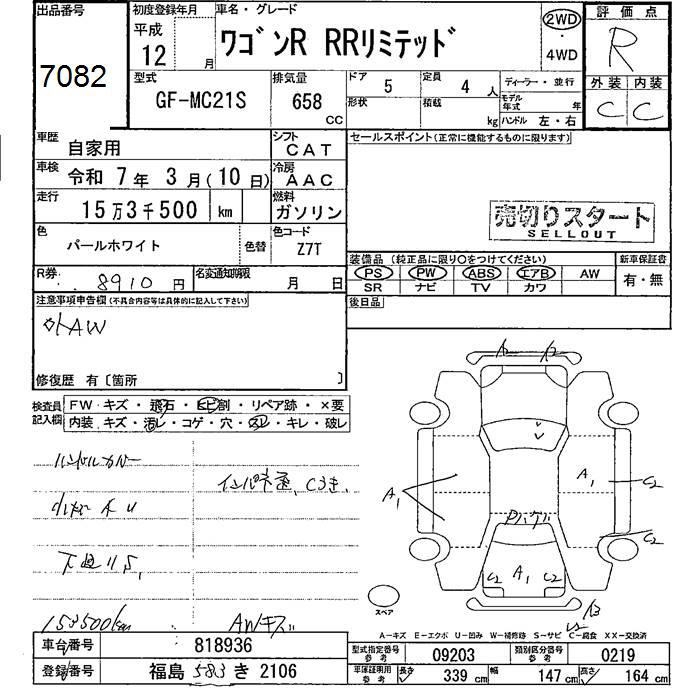 出品番号
7082
初度登録年月
平成
12 月
車名・グレード
ワゴンR RRリミテッド
2WD
・
4WD
評価点
R
外装 内装
C C
型式
GF-MC21S
排気量
658
CC
ドア
5
定員
4 人
形状
積載
kg
ディーラー・並行
モデル年式 年
ハンドル 左・右
車歴
自家用
シフト
CAT
車検
令和 7年 3月(10日)
冷房
AAC
走行
15万3千500 km
燃料
ガソリン
色
パールホワイト
色替
色コード
Z7T
R券
8910 円
名変通知期限
月 日
セールスポイント(正常に機能するものに限ります)
売切りスタート
SELLOUT
装備品(純正品に限り○をつけてください)
PS PW ABS エアB AW
SR ナビ TV カワ
新車保証書
有・無
後日品
注意事項申告欄(不具合内容等は具体的に記入して下さい)
外AW
修復歴 有〔箇所 〕
検査員記入欄
FW・キズ・飛石・ヒビ割・リペア跡・×要
内装・キズ・汚レ・コゲ・穴・スレ・キレ・破レ
ハンドルカバー
153500km
AWキズ
A2
A1
A1
C2
C2
C2
A1
C2
スペア
A-キズ E-エクボ U-凹み W-補修跡 S-サビ C-腐食 XX-交換済
車台番号
818936
登録番号
福島 583 き 2106
型式指定番号
参考
09203
類別区分番号
参考
0219
車庫証明用
参考
長さ 339 cm
幅 147 cm
高さ 164 cm